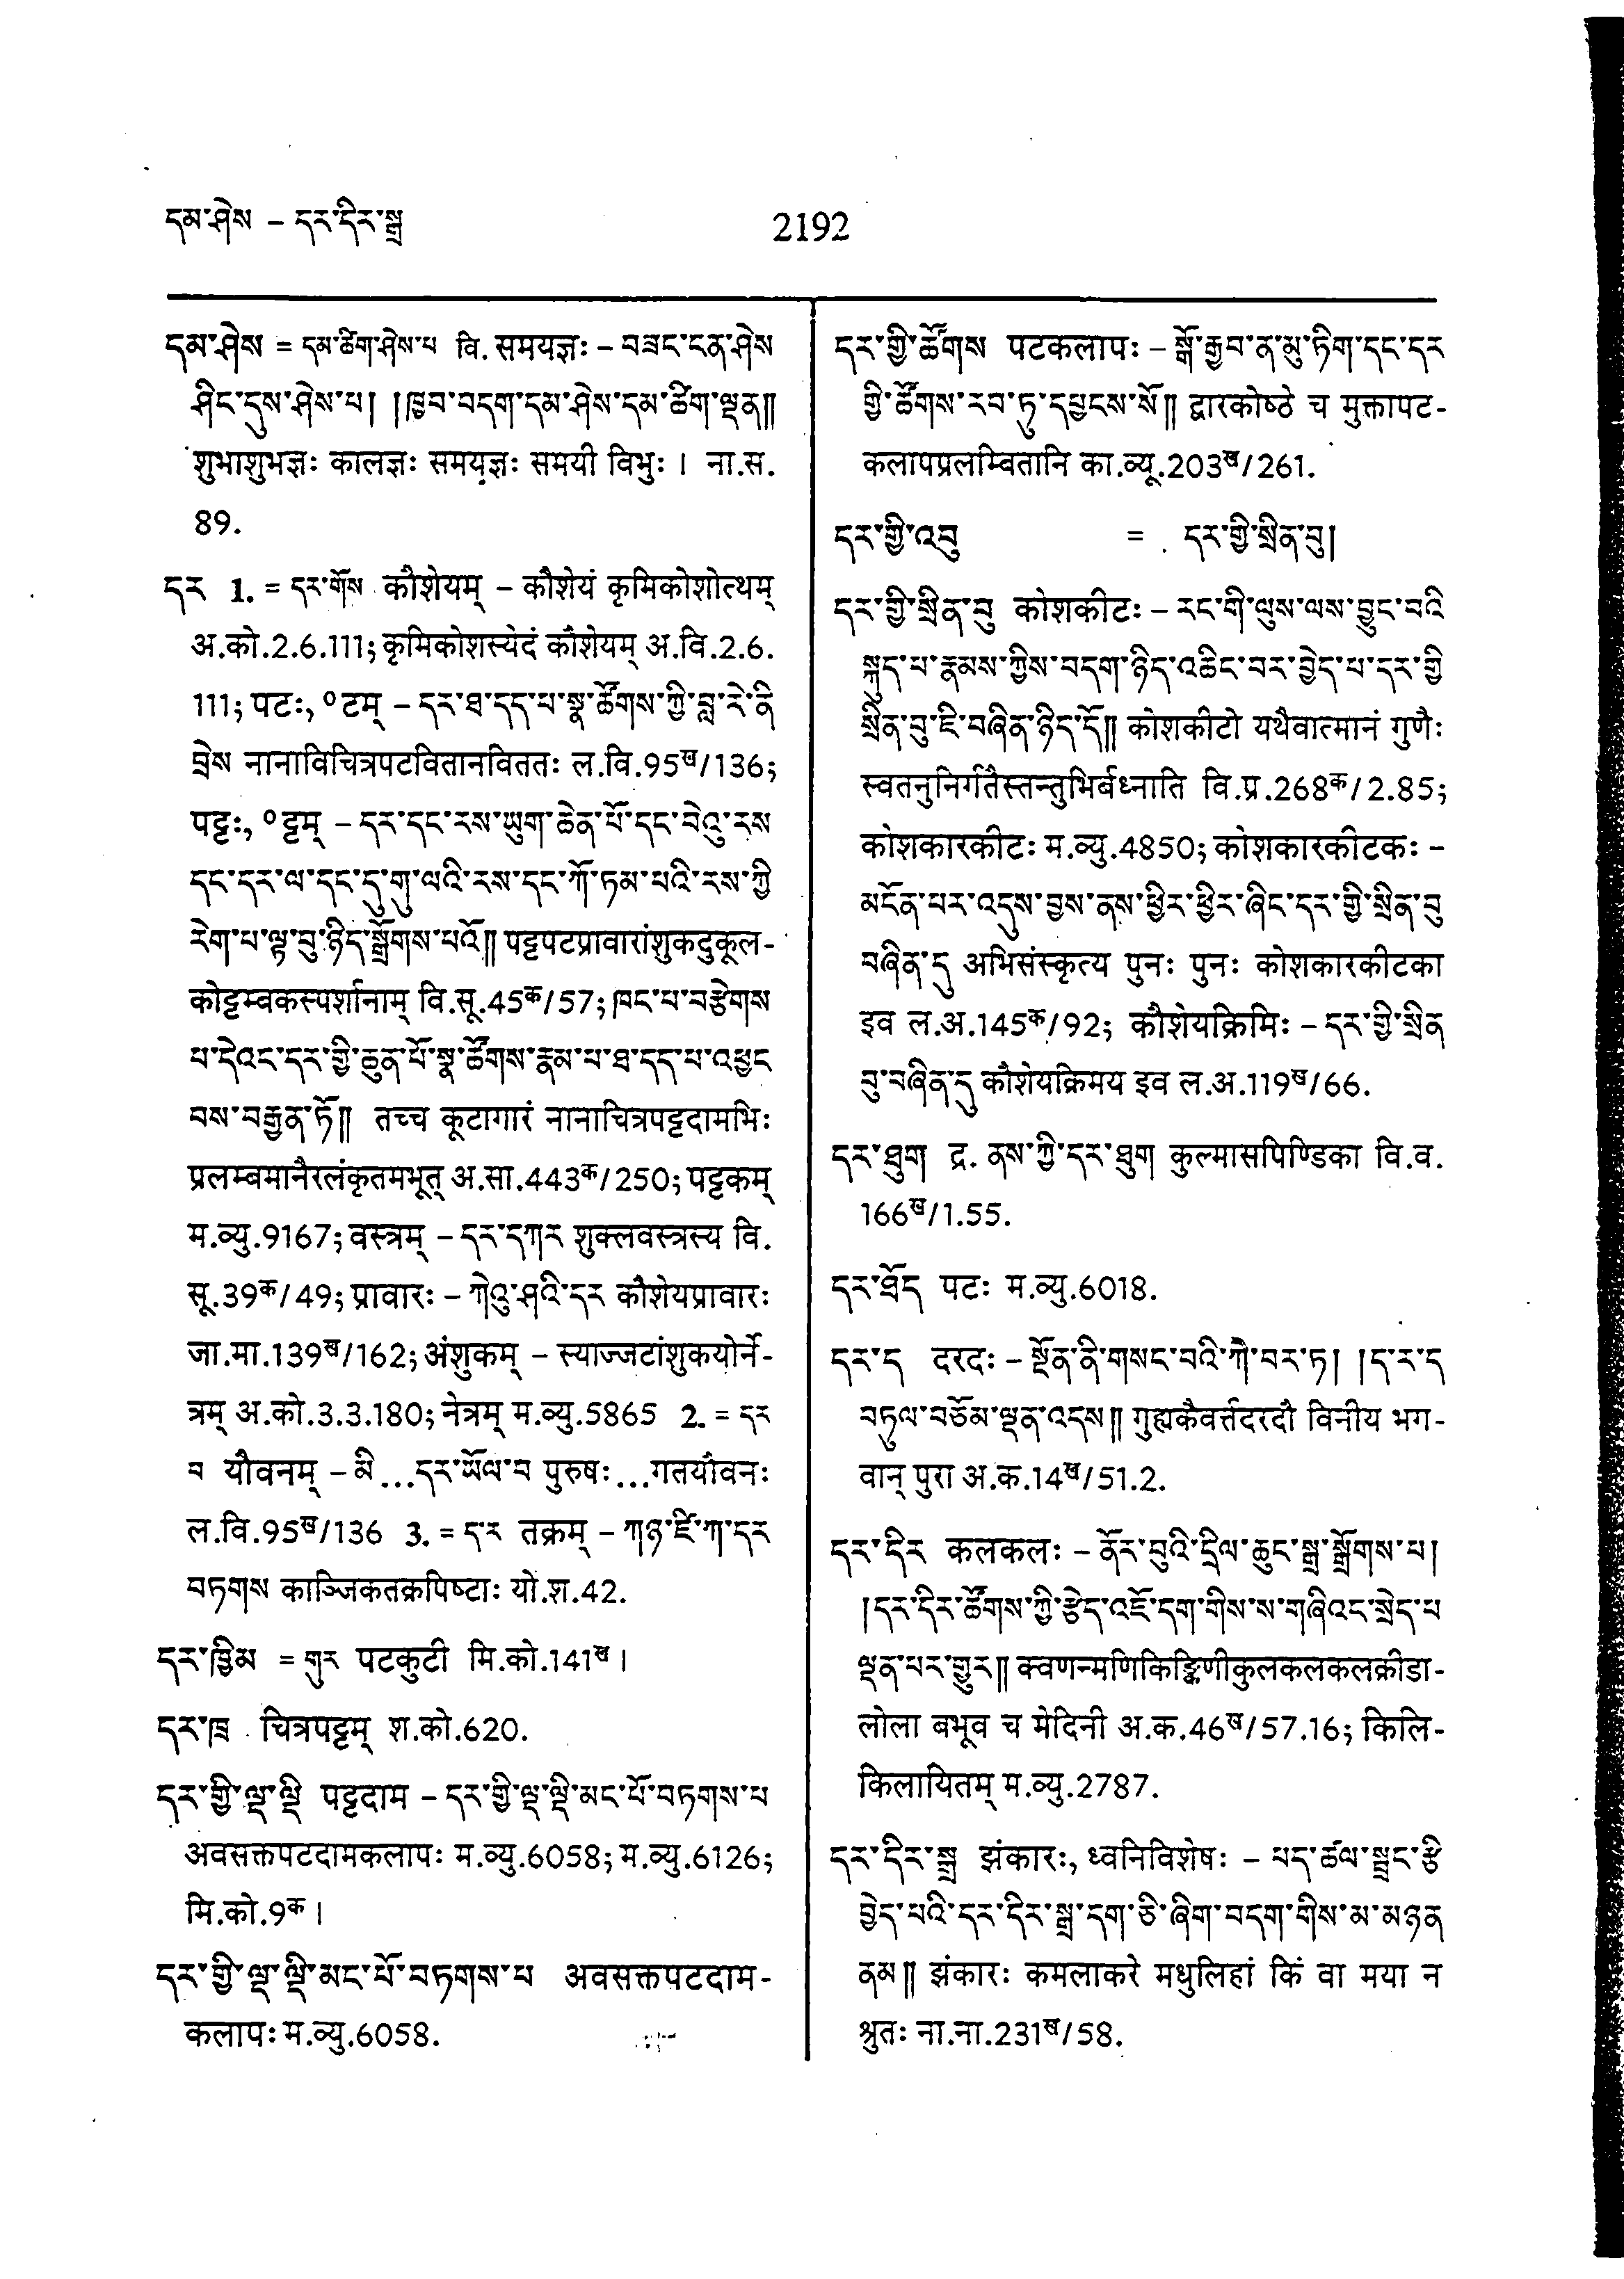 དམ་ཤེས – དར་དིར་སྒྲ
2192
དམ་ཤེས = དམ་ཚིག་ཤེས་པ वि. समयज्ञः – བཟང་ངན་ཤེས
ཤིང་དུས་ཤེས་པ། །ཁྱབ་བདག་དམ་ཤེས་དམ་ཚིག་ལྡན༎
शुभाशुभज्ञः कालज्ञः समयज्ञः समयी विभुः । ना.स.
89.
དར 1. = དར་གོས कौशेयम् – कौशेयं कृमिकोशोत्थम्
अ.को.2.6.111; कृमिकोशस्येदं कौशेयम् अ.वि.2.6.
111; पटः, ०टम् – དར་ཐ་དད་པ་སྣ་ཚོགས་ཀྱི་བླ་རེ་ནི
བྲེས नानाविचित्रपटवितानविततः ल.वि.95ख/136;
पट्टः, ०ट्टम् – དར་དང་རས་ཡུག་ཆེན་པོ་དང་བེའུ་རས
དང་དར་ལ་དང་དུ་གུ་ལའི་རས་དང་ཀོ་ཏམ་པའི་རས་ཀྱི
རེག་པ་ལྟ་བུ་ཉིད་སྒྲོགས་པའོ༎ पट्टपटप्रावारांशुकदुकूल-
कोट्टम्वकस्पर्शानाम् वि.सू.45क/57; ཁང་པ་བརྩེགས
པ་དེའང་དར་གྱི་ཆུན་པོ་སྣ་ཚོགས་རྣམ་པ་ཐ་དད་པ་འཕྱང
བས་བརྒྱན་ཏོ༎ तच्च कूटागारं नानाचित्रपट्टदामभिः
प्रलम्बमानैरलंकृतमभूत् अ.सा.443क/250; पट्टकम्
म.व्यु.9167; वस्त्रम् – དར་དཀར शुक्लवस्त्रस्य वि.
सू.39क/49; प्रावारः – ཀེའུ་ཤའི་དར कौशेयप्रावारः
जा.मा.139ख/162; अंशुकम् – स्याज्जटांशुकयोर्ने-
त्रम् अ.को.3.3.180; नेत्रम् म.व्यु.5865 2. = དར
བ यौवनम् – མི...དར་ཡོལ་བ पुरुषः...गतयौवनः
ल.वि.95ख/136 3. = ད་ར तक्रम् – ཀཉ་ཛི་ཀ་དར
བཏགས काञ्जिकतक्रपिष्टाः यो.श.42.
དར་ཁྱིམ = གུར पटकुटी मि.को.141ख ।
དར་ཁྲ चित्रपट्टम् श.को.620.
དར་གྱི་ལྡ་ལྡི पट्टदाम – དར་གྱི་ལྡ་ལྡི་མང་པོ་བཏགས་པ
अवसक्तपटदामकलापः म.व्यु.6058; म.व्यु.6126;
मि.को.9क ।
དར་གྱི་ལྡ་ལྡི་མང་པོ་བཏགས་པ अवसक्तपटदाम-
कलापः म.व्यु.6058.
དར་གྱི་ཚོགས पटकलापः – སྒོ་རྒྱབ་ན་མུ་ཏིག་དང་དར
གྱི་ཚོགས་རབ་ཏུ་དཔྱངས་སོ༎ द्वारकोष्ठे च मुक्तापट-
कलापप्रलम्वितानि का.व्यू.203ख/261.
དར་གྱི་འབུ = དར་གྱི་སྲིན་བུ།
དར་གྱི་སྲིན་བུ कोशकीटः – རང་གི་ལུས་ལས་བྱུང་བའི
སྐུད་པ་རྣམས་ཀྱིས་བདག་ཉིད་འཆིང་བར་བྱེད་པ་དར་གྱི
སྲིན་བུ་ཇི་བཞིན་ཉིད་དོ༎ कोशकीटो यथैवात्मानं गुणैः
स्वतनुनिर्गतैस्तन्तुभिर्बध्नाति वि.प्र.268क/2.85;
कोशकारकीटः म.व्यु.4850; कोशकारकीटकः –
མངོན་པར་འདུས་བྱས་ནས་ཕྱིར་ཕྱིར་ཞིང་དར་གྱི་སྲིན་བུ
བཞིན་དུ अभिसंस्कृत्य पुनः पुनः कोशकारकीटका
इव ल.अ.145क/92; कौशेयक्रिमिः – དར་གྱི་སྲིན
བུ་བཞིན་དུ कौशेयक्रिमय इव ल.अ.119ख/66.
དར་ཐུག द्र. ནས་ཀྱི་དར་ཐུག कुल्मासपिण्डिका वि.व.
166ख/1.55.
དར་ཐོད पटः म.व्यु.6018.
དར་ད दरदः – སྔོན་ནི་གསང་བའི་ཀེ་བར་ཏ། །ད་ར་ད
བཏུལ་བཅོམ་ལྡན་འདས༎ गुह्यकैवर्त्तदरदौ विनीय भग-
वान् पुरा अ.क.14ख/51.2.
དར་དིར कलकलः – ནོར་བུའི་དྲིལ་ཆུང་སྒྲ་སྒྲོགས་པ།
།དར་དིར་ཚོགས་ཀྱི་རྩེད་འཇོ་དག་གིས་ས་གཞིའང་སྲེད་པ
ལྡན་པར་གྱུར༎ क्वणन्मणिकिङ्किणीकुलकलकलक्रीडा-
लोला बभूव च मेदिनी अ.क.46ख/57.16; किलि-
किलायितम् म.व्यु.2787.
དར་དིར་སྒྲ झंकारः, ध्वनिविशेषः – པད་ཚལ་སྦྲང་རྩི
བྱེད་པའི་དར་དིར་སྒྲ་དག་ཅི་ཞིག་བདག་གིས་མ་མཉན
ནམ༎ झंकारः कमलाकरे मधुलिहां किं वा मया न
श्रुतः ना.ना.231ख/58.